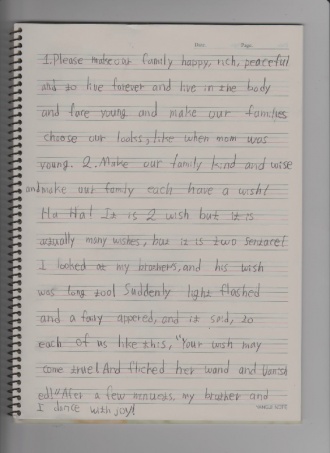 Date. Page.
1. Please make our family happy, rich, peaceful
and to live forever and live in the body
and fore young and make our families
choose our looks, like when mom was
young. 2. Make our family kind and wise
and make our family each have a wish!
Ha Ha! It is 2 wish but it is
actually many wishes, but it is two sentace!
I looked at my brothers, and his wish
was long too! Suddenly light flashed
and a fairy appered, and it said, to
each of us like this, "Your wish may
come true! And fliched her wand and vanish
ed!" After a few menuets, my brother and
I dance with joy!